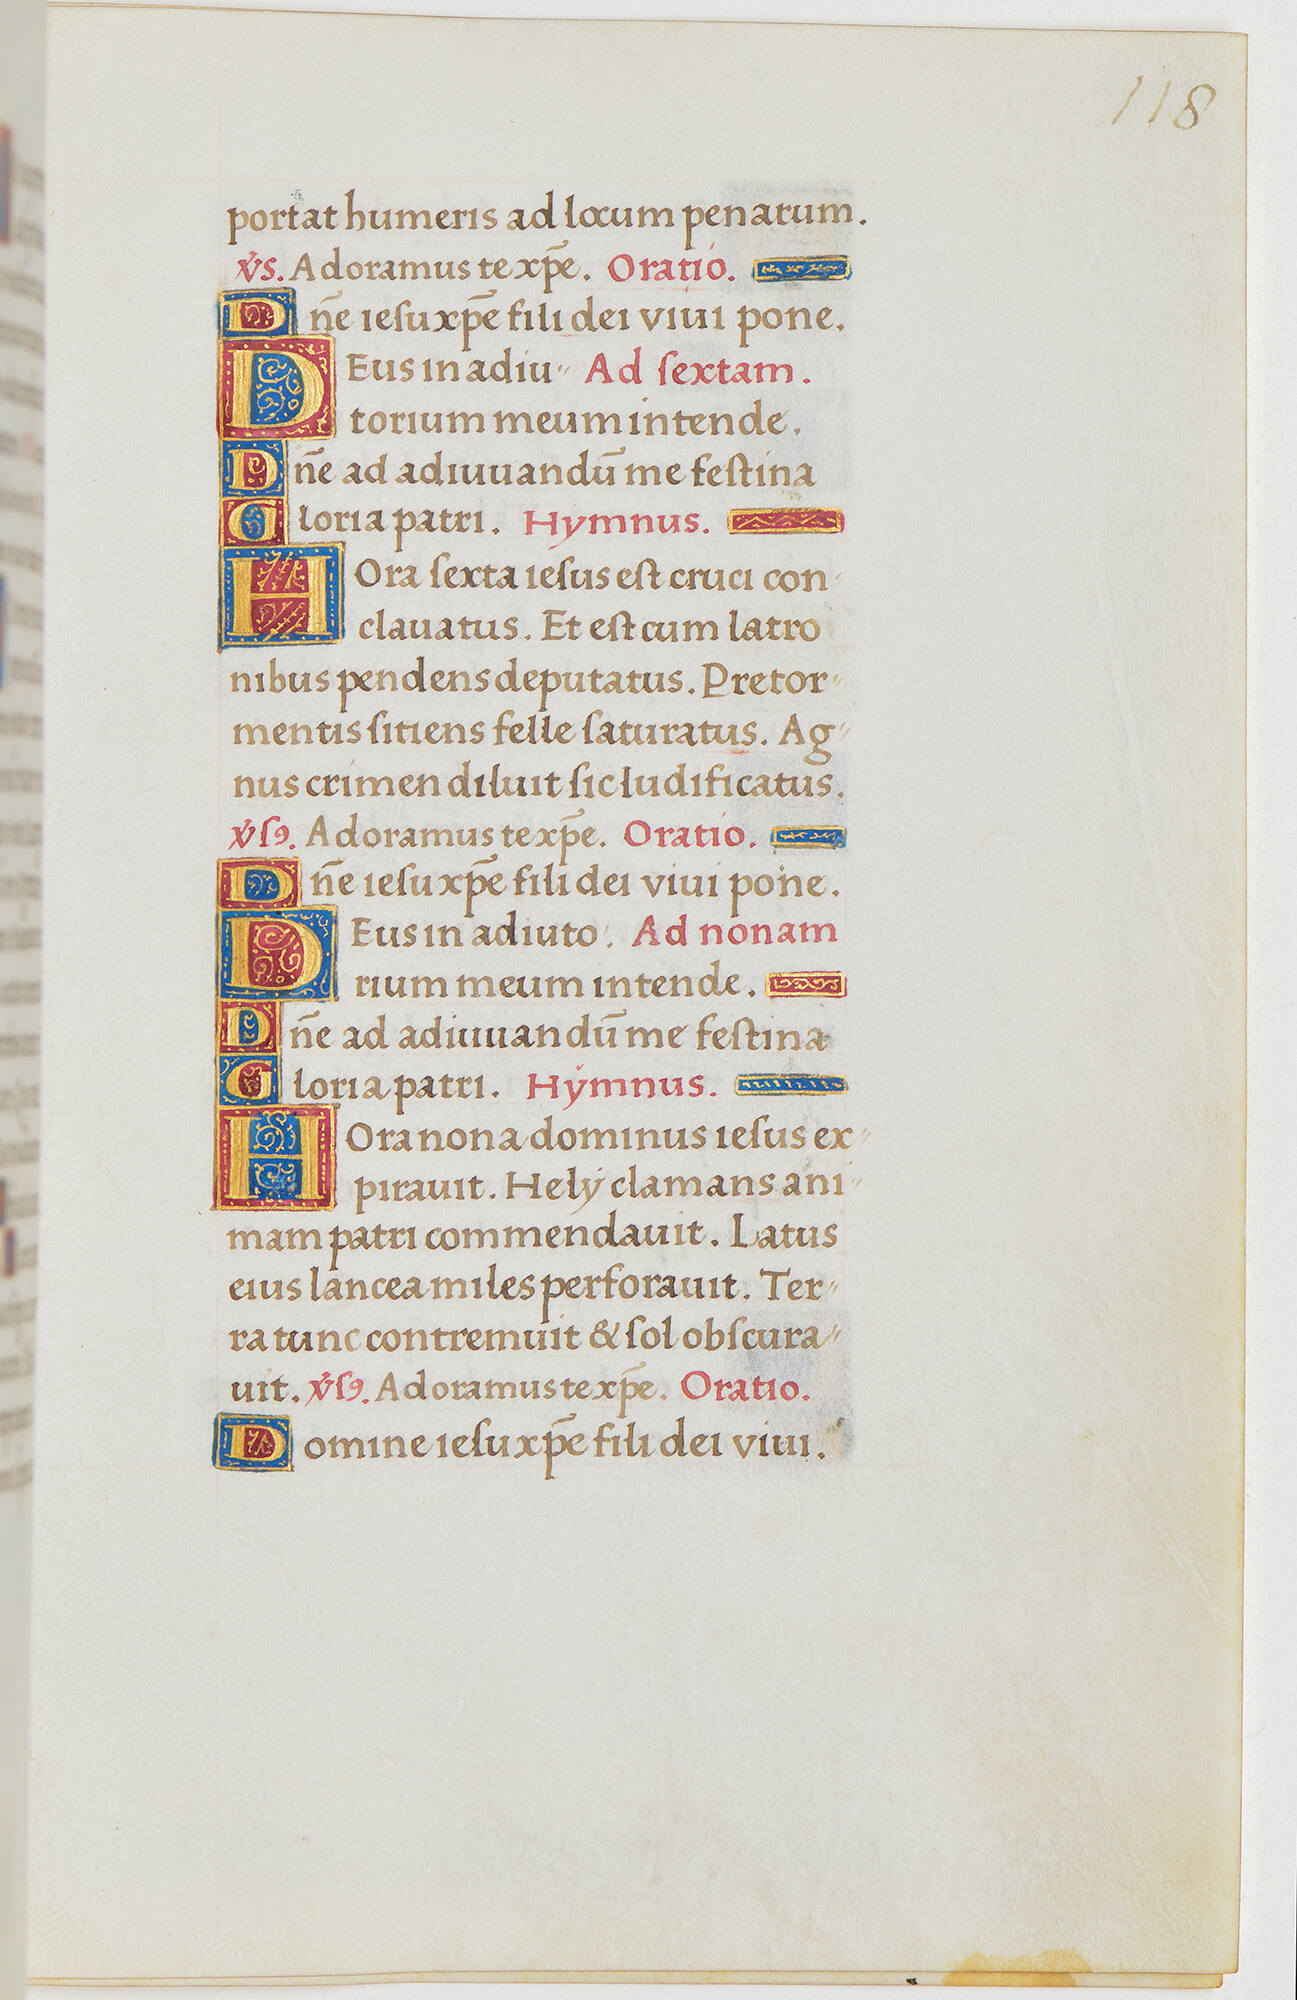 118
portat humeris ad locum penarum.
v̾s. Adoramus te xp̄e. Oratio.
Dn̄e ieſu xp̄e fili dei viui pone.
DEus in adiu〃 Ad ſextam.
torium meum intende.
Dn̄e ad adiuuandū me feſtina
Gloria patri. Hymnus.
HOra ſexta ieſus eſt cruci con〃
clauatus. Et eſt cum latro
nibus pendens deputatus. Pretor〃
mentis ſitiens felle ſaturatus. Ag〃
nus crimen diluit ſic ludificatus.
v̾ſꝯ. Adoramus te xp̄e. Oratio.
Dn̄e ieſu xp̄e fili dei viui pone.
DEus in adiuto〃. Ad nonam
rium meum intende.
Dn̄e ad adiuuandū me feſtina
Gloria patri. Hẏmnus.
HOra nona dominus ieſus ex〃
pirauit. Helẏ clamans ani〃
mam patri commendauit. Latus
eius lancea miles perforauit. Ter〃
ra tunc contremuit & ſol obſcura〃
uit. v̾ſꝯ. Adoramus te xp̄e. Oratio.
Domine ieſu xp̄e fili dei viui.